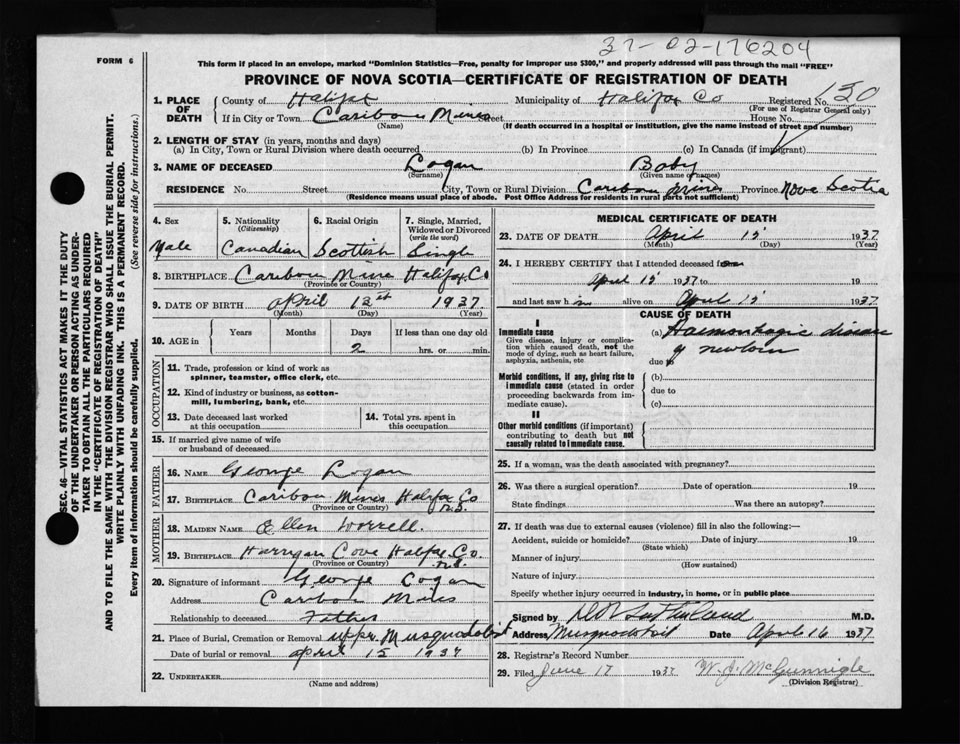 37-02-176204
FORM 6
This form if placed in an envelope, marked "Dominion Statistics—Free, penalty for improper use $300," and properly addressed will pass through the mail "FREE"
PROVINCE OF NOVA SCOTIA—CERTIFICATE OF REGISTRATION OF DEATH
SEC. 46—VITAL STATISTICS ACT MAKES IT THE DUTY
OF THE UNDERTAKER OR PERSON ACTING AS UNDER-
TAKER TO OBTAIN ALL THE PARTICULARS REQUIRED
IN THE "CERTIFICATE OF REGISTRATION OF DEATH"
AND TO FILE THE SAME WITH THE DIVISION REGISTRAR WHO SHALL ISSUE THE BURIAL PERMIT.
WRITE PLAINLY WITH UNFADING INK. THIS IS A PERMANENT RECORD.
Every item of information should be carefully supplied. (See reverse side for instructions.)
1. PLACE OF DEATH
County of Halifax Municipality of Halifax Co Registered No. 150
(For use of Registrar General only)
If in City or Town Caribou Mines Street House No.
(Name) (If death occurred in a hospital or institution, give the name instead of street and number)
2. LENGTH OF STAY (in years, months and days)
(a) In City, Town or Rural Division where death occurred (b) In Province (c) In Canada (if immigrant)
3. NAME OF DECEASED Logan Baby
(Surname) (Given name or names)
RESIDENCE No. Street City, Town or Rural Division Caribou Mines Province Nova Scotia
(Residence means usual place of abode. Post Office Address for residents in rural parts not sufficient)
4. Sex
Male
5. Nationality
(Citizenship)
Canadian
6. Racial Origin
Scottish
7. Single, Married,
Widowed or Divorced
(write the word)
Single
8. BIRTHPLACE Caribou Mine Halifax Co
(Province or Country)
9. DATE OF BIRTH April 13st 1937
(Month) (Day) (Year)
10. AGE in
Years Months Days If less than one day old
2 hrs. or min.
OCCUPATION
11. Trade, profession or kind of work as
spinner, teamster, office clerk, etc.
12. Kind of industry or business, as cotton-
mill, lumbering, bank, etc.
13. Date deceased last worked
at this occupation
14. Total yrs. spent in
this occupation
15. If married give name of wife
or husband of deceased
FATHER
16. NAME George Logan
17. BIRTHPLACE Caribou Mines Halifax Co
(Province or Country) N.S.
MOTHER
18. MAIDEN NAME Ellen Worrell.
19. BIRTHPLACE Harrigan Cove Halifax Co.
(Province or Country) N.S.
20. Signature of informant George Logan
Address Caribou Mines
Relationship to deceased Father
21. Place of Burial, Cremation or Removal Uppr. Musquodobit
Date of burial or removal April 15 1937
22. UNDERTAKER
(Name and address)
MEDICAL CERTIFICATE OF DEATH
23. DATE OF DEATH April 15 1937
(Month) (Day) (Year)
24. I HEREBY CERTIFY that I attended deceased from
April 15 1937 to 19
and last saw him alive on April 15 1937
CAUSE OF DEATH
I
Immediate cause
Give disease, injury or complica-
tion which caused death, not the
mode of dying, such as heart failure,
asphyxia, asthenia, etc
(a) Haemorrhagic disease
of newborn
due to
Morbid conditions, if any, giving rise to
immediate cause (stated in order
proceeding backwards from im-
mediate cause).
(b)
due to
(c)
II
Other morbid conditions (if important)
contributing to death but not
causally related to immediate cause.
25. If a woman, was the death associated with pregnancy?
26. Was there a surgical operation? Date of operation 19
State findings Was there an autopsy?
27. If death was due to external causes (violence) fill in also the following:—
Accident, suicide or homicide? Date of injury 19
(State which)
Manner of injury
(How sustained)
Nature of injury
Specify whether injury occurred in industry, in home, or in public place
Signed by Sutherland M.D.
Address Musquodoboit Date April 16 1937
28. Registrar's Record Number
29. Filed June 17 1937 W. J. McGunnigle
(Division Registrar)